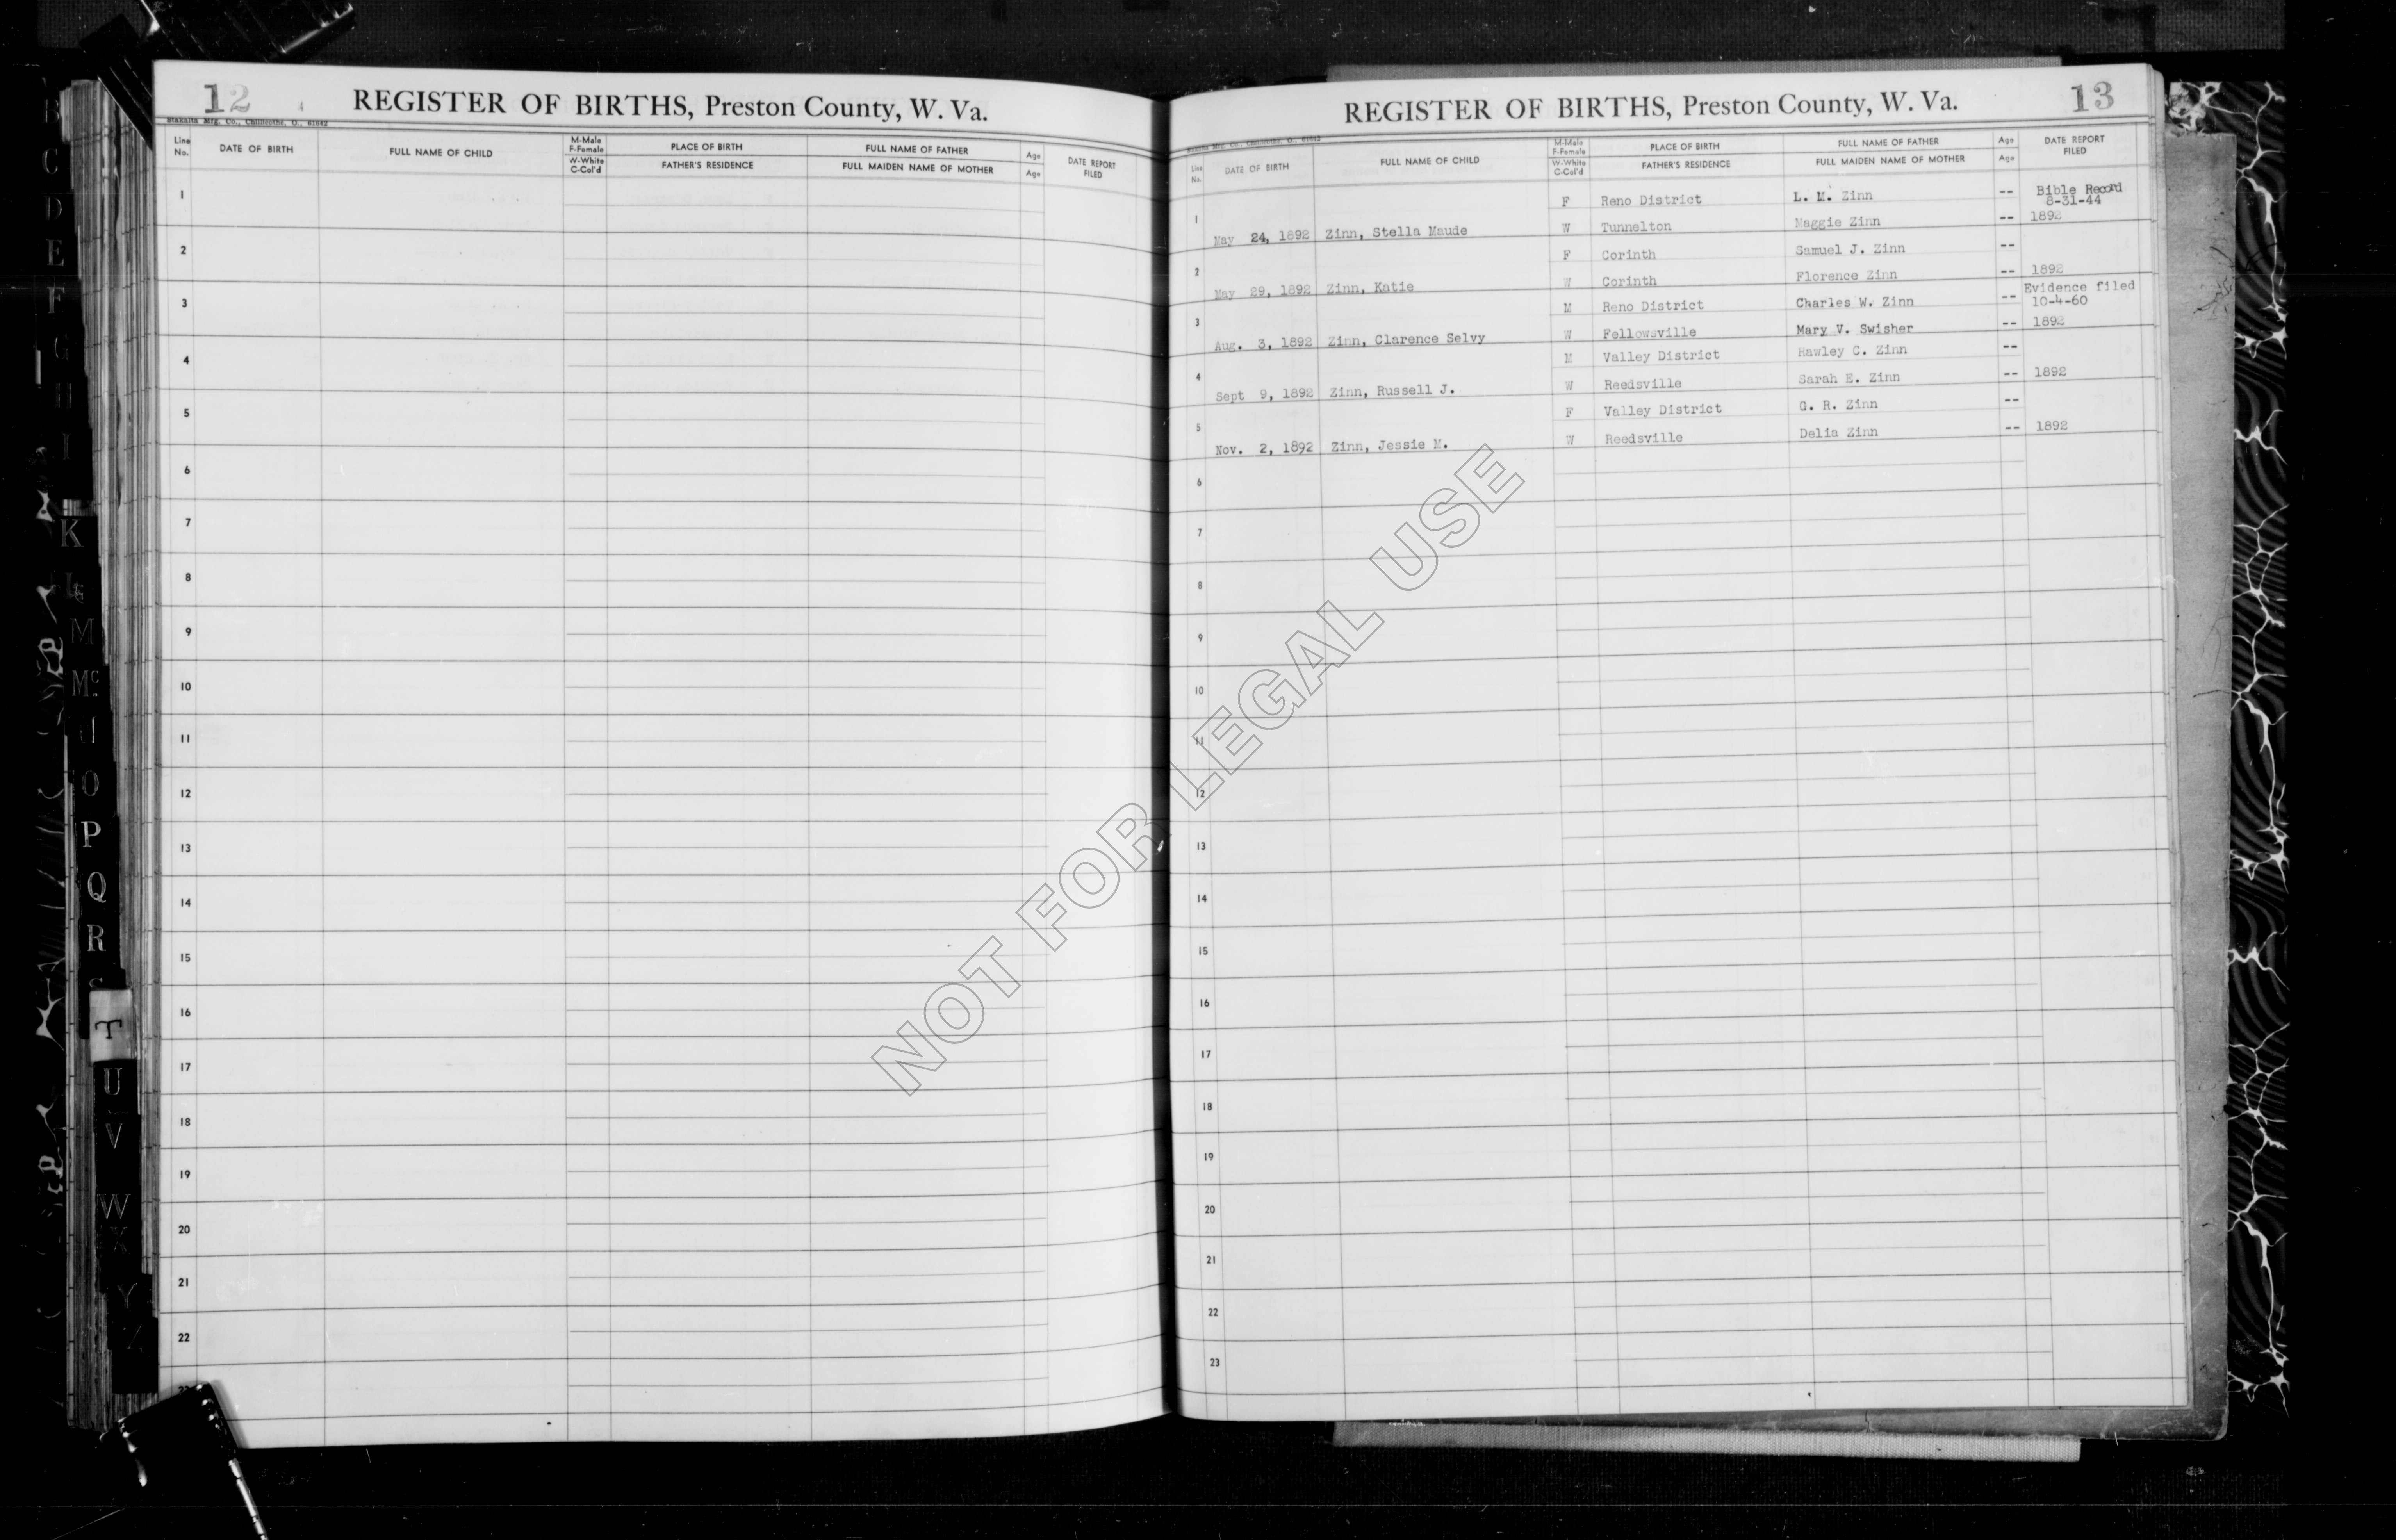 12
REGISTER OF BIRTHS, Preston County, W. Va.
Line No.
DATE OF BIRTH
FULL NAME OF CHILD
M-Male
F-Female
W-White
C-Col'd
PLACE OF BIRTH
FATHER'S RESIDENCE
FULL NAME OF FATHER
FULL MAIDEN NAME OF MOTHER
Age
Age
DATE REPORT FILED
1
2
3
4
5
6
7
8
9
10
11
12
13
14
15
16
17
18
19
20
21
22
REGISTER OF BIRTHS, Preston County, W. Va.
13
Line No.
DATE OF BIRTH
FULL NAME OF CHILD
M-Male
F-Female
W-White
C-Col'd
PLACE OF BIRTH
FATHER'S RESIDENCE
FULL NAME OF FATHER
FULL MAIDEN NAME OF MOTHER
Age
Age
DATE REPORT FILED
F Reno District L. M. Zinn -- Bible Record 8-31-44
1 May 24, 1892 Zinn, Stella Maude W Tunnelton Maggie Zinn -- 1892
F Corinth Samuel J. Zinn --
2 May 29, 1892 Zinn, Katie W Corinth Florence Zinn -- 1892
M Reno District Charles W. Zinn -- Evidence filed 10-4-60
3 Aug. 3, 1892 Zinn, Clarence Selvy W Fellowsville Mary V. Swisher -- 1892
M Valley District Rawley C. Zinn --
4 Sept 9, 1892 Zinn, Russell J. W Reedsville Sarah E. Zinn -- 1892
F Valley District G. R. Zinn --
5 Nov. 2, 1892 Zinn, Jessie M. W Reedsville Delia Zinn -- 1892
6
7
8
9
10
11
12
13
14
15
16
17
18
19
20
21
22
23
NOT FOR LEGAL USE
K
M
Mc
O
P
Q
R
T
U
V
W
X
Y
Z